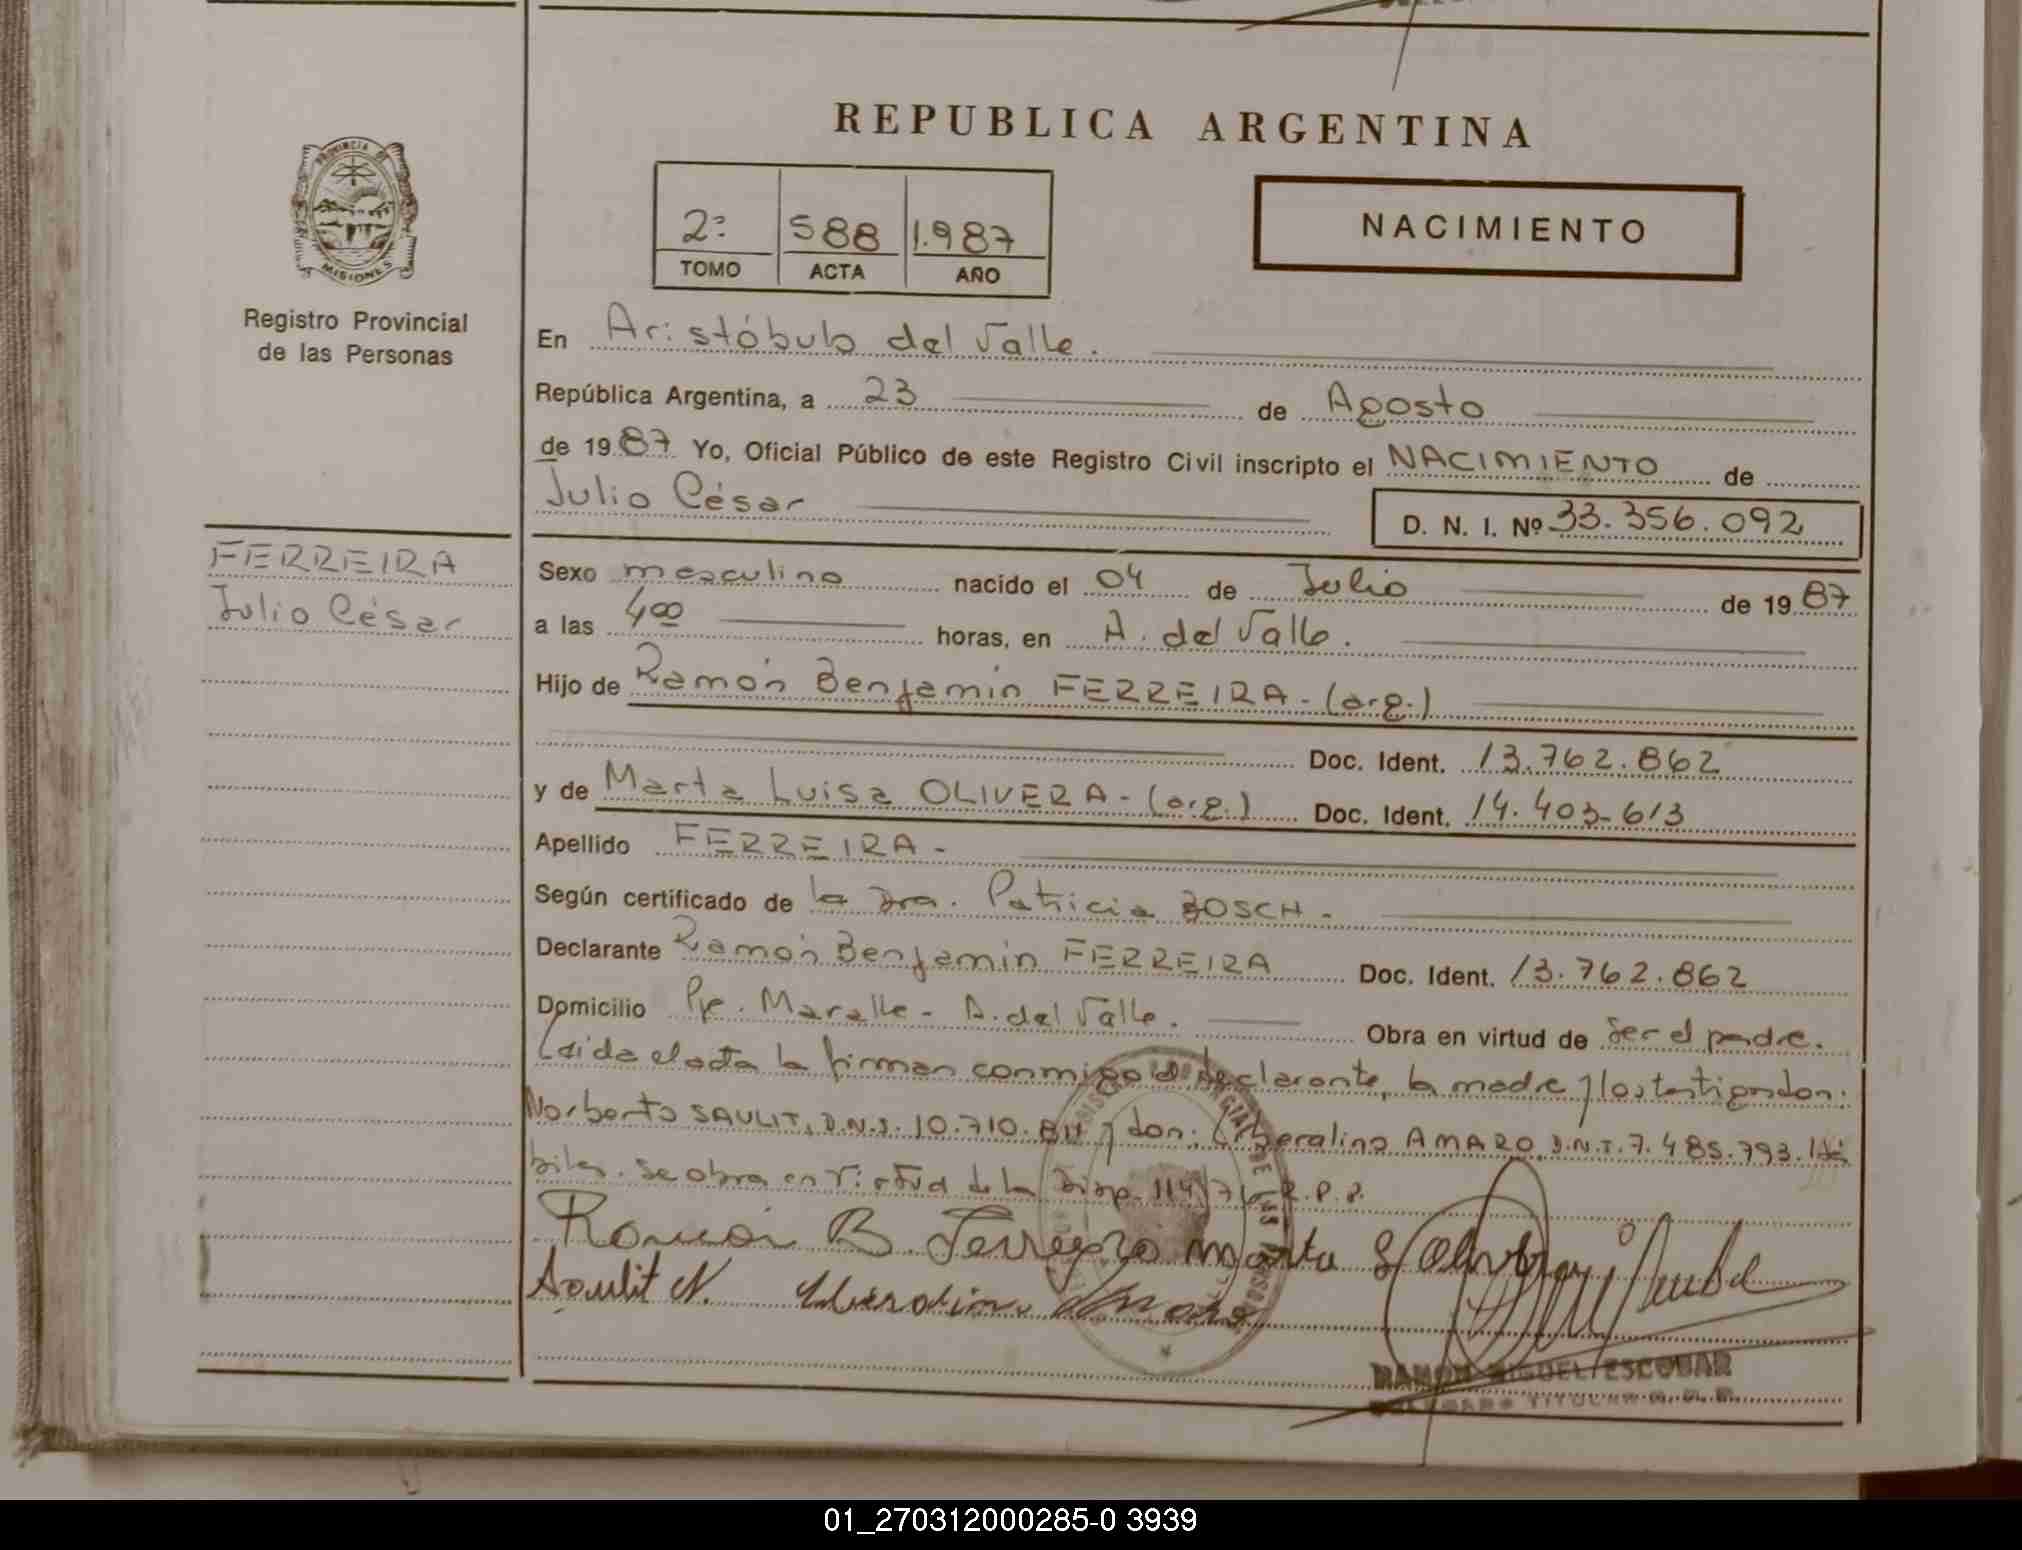 REPUBLICA ARGENTINA
PROVINCIA DE
MISIONES
Registro Provincial
de las Personas
2º 588 1.987
TOMO ACTA AÑO
NACIMIENTO
En Aristóbulo del Valle.
República Argentina, a 23 de Agosto
de 1987 Yo, Oficial Público de este Registro Civil inscripto el NACIMIENTO de
Julio César D. N. I. Nº 33.356.092
FERREIRA
Julio César
Sexo masculino nacido el 04 de Julio de 1987
a las 4 00 horas, en A. del Valle.
Hijo de Ramón Benjamín FERREIRA - (arg.)
Doc. Ident. 13.762.862
y de Marta Luisa OLIVERA - (arg.) Doc. Ident. 14.403-613
Apellido FERREIRA -
Según certificado de la Dra. Patricia BOSCH -
Declarante Ramón Benjamín FERREIRA Doc. Ident. 13.762.862
Domicilio Pje. Maralle - A. del Valle. Obra en virtud de ser el padre.
Leida el acta la firman conmigo el declarante, la madre y los testigos don:
Norberto SAULIT, D.N.I. 10.710. y don: Liberalino AMARO, D.N.I. 7.485.793.
biles. Se obra en virtud de la Disp. 114/ R.P.P.
Ramón B. Ferreyra Marta L Olivera
Saulit N. Liberalino Amaro
RAMON MIGUEL ESCOBAR
DELEGADO TITULAR R. P. P.
01_270312000285-0 3939